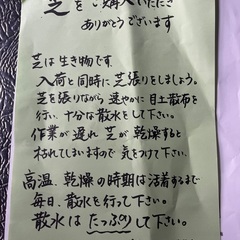 芝をご購入いただき
ありがとうございます
芝は生き物です。
入荷と同時に芝張りをしましょう。
芝を張りながら速やかに目土散布を
行い、十分な散水をして下さい。
作業が遅れ芝が乾燥すると
枯れてしまいますので気をつけて下さい。
高温、乾燥の時期は活着するまで
毎日、散水を行って下さい。
散水はたっぷりして下さい。